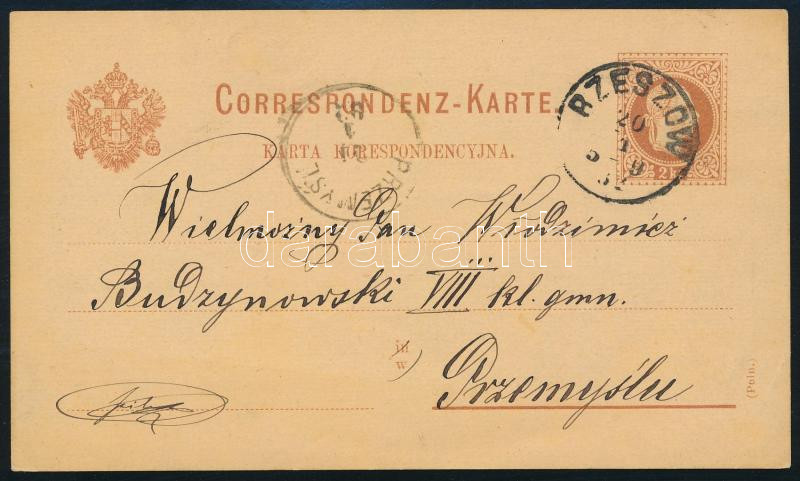 CORRESPONDENZ-KARTE.
KARTA KORESPONDENCYJNA.
RZESZOW
20
PRZEMYŚL
2 K
Wielmożny Pan Włodzimież
Budzynowski VIII kl. gmn.
in
w
Przemyślu
(Poln.)
darabanth